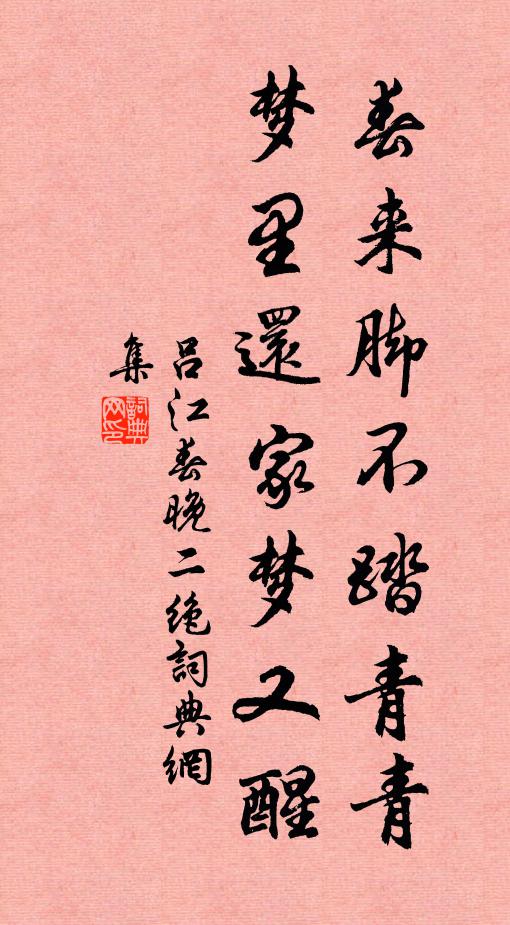 春来脚不踏青青
梦里還家梦又醒
吕江春晚二绝詞典網
集
詞典网印